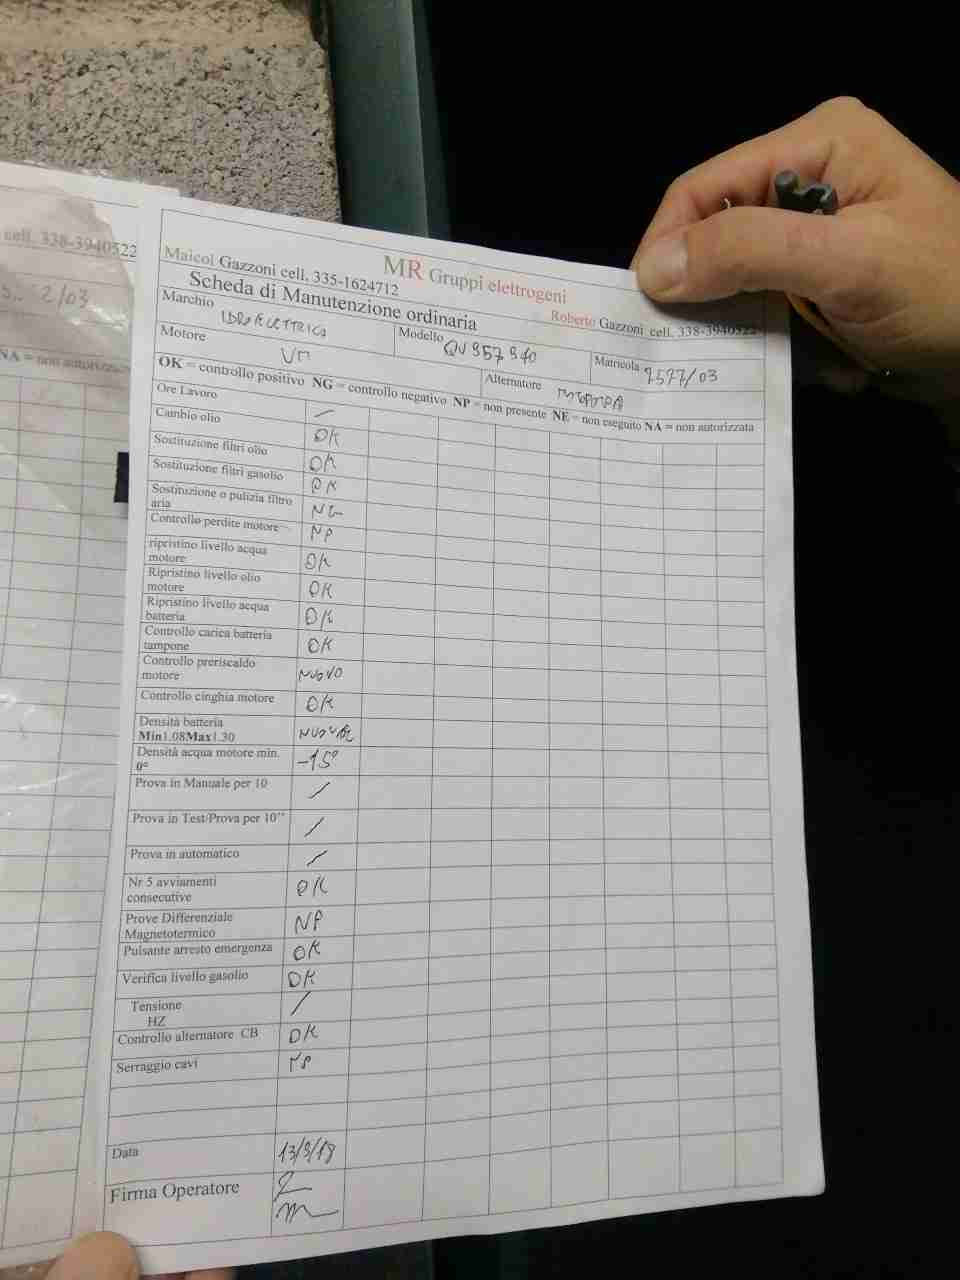 cell. 338-3940522
2/03
NA = non autorizzata
MR Gruppi elettrogeni
Maicol Gazzoni cell. 335-1624712
Roberto Gazzoni cell. 338-3940522
Scheda di Manutenzione ordinaria
Marchio IDROELETTRICA Modello QV357340 Matricola 7577/03
Motore VM Alternatore
OK = controllo positivo NG = controllo negativo NP = non presente NE = non eseguito NA = non autorizzata
Ore Lavoro /
Cambio olio OK
Sostituzione filtri olio OK
Sostituzione filtri gasolio OK
Sostituzione o pulizia filtro aria NG
Controllo perdite motore NP
ripristino livello acqua motore OK
Ripristino livello olio motore OK
Ripristino livello acqua batteria OK
Controllo carica batteria tampone OK
Controllo preriscaldo motore NUOVO
Controllo cinghia motore OK
Densità batteria Min1.08Max1.30
Densità acqua motore min. 0° -15°
Prova in Manuale per 10 /
Prova in Test/Prova per 10'' /
Prova in automatico /
Nr 5 avviamenti consecutive OK
Prove Differenziale Magnetotermico NP
Pulsante arresto emergenza OK
Verifica livello gasolio OK
Tensione HZ /
Controllo alternatore CB OK
Serraggio cavi
Data 13/9/18
Firma Operatore